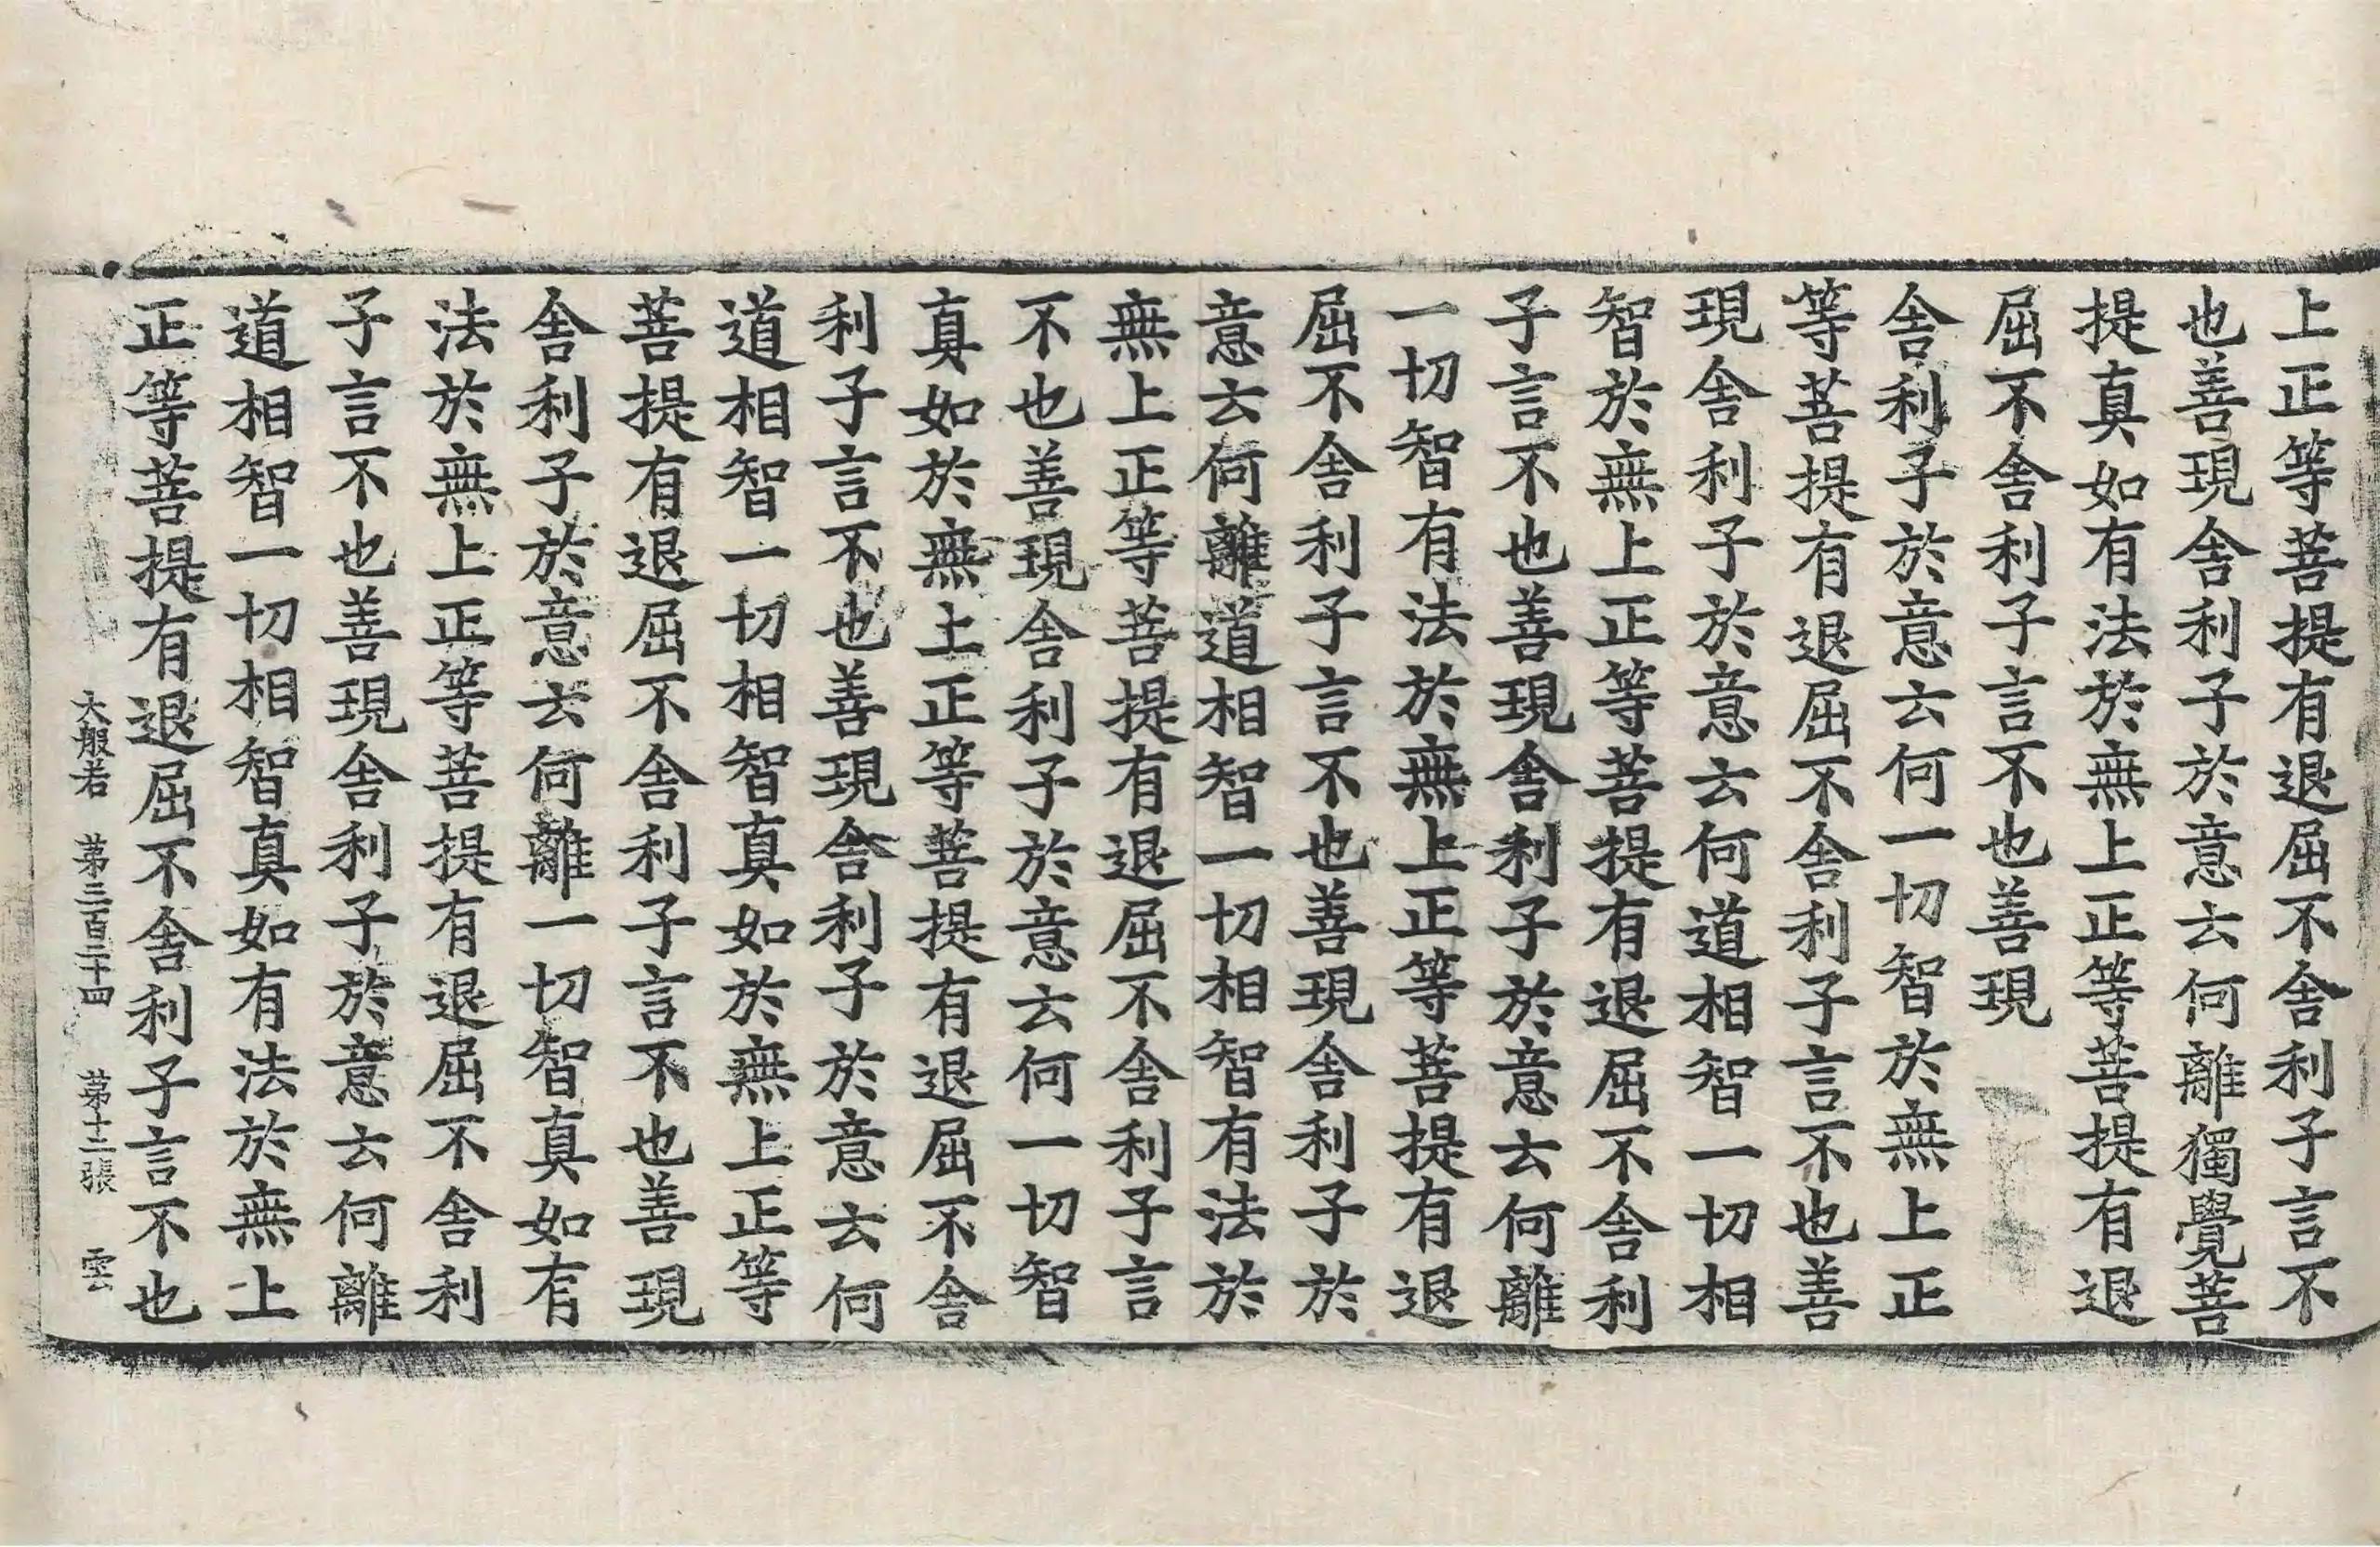 上正等菩提有退屈不舎利子言不
也善現舎利子於意云何離獨覺菩
提真如有法於無上正等菩提有退
屈不舎利子言不也善現
舎利子於意云何一切智於無上正
等菩提有退屈不舎利子言不也善
現舎利子於意云何道相智一切相
智於無上正等菩提有退屈不舎利
子言不也善現舎利子於意云何離
一切智有法於無上正等菩提有退
屈不舎利子言不也善現舎利子於
意云何離道相智一切相智有法於
無上正等菩提有退屈不舎利子言
不也善現舎利子於意云何一切智
真如於無上正等菩提有退屈不舎
利子言不也善現舎利子於意云何
道相智一切相智真如於無上正等
菩提有退屈不舎利子言不也善現
舎利子於意云何離一切智真如有
法於無上正等菩提有退屈不舎利
子言不也善現舎利子於意云何離
道相智一切相智真如有法於無上
正等菩提有退屈不舎利子言不也
大般若 第三百二十四 第十二張 雲